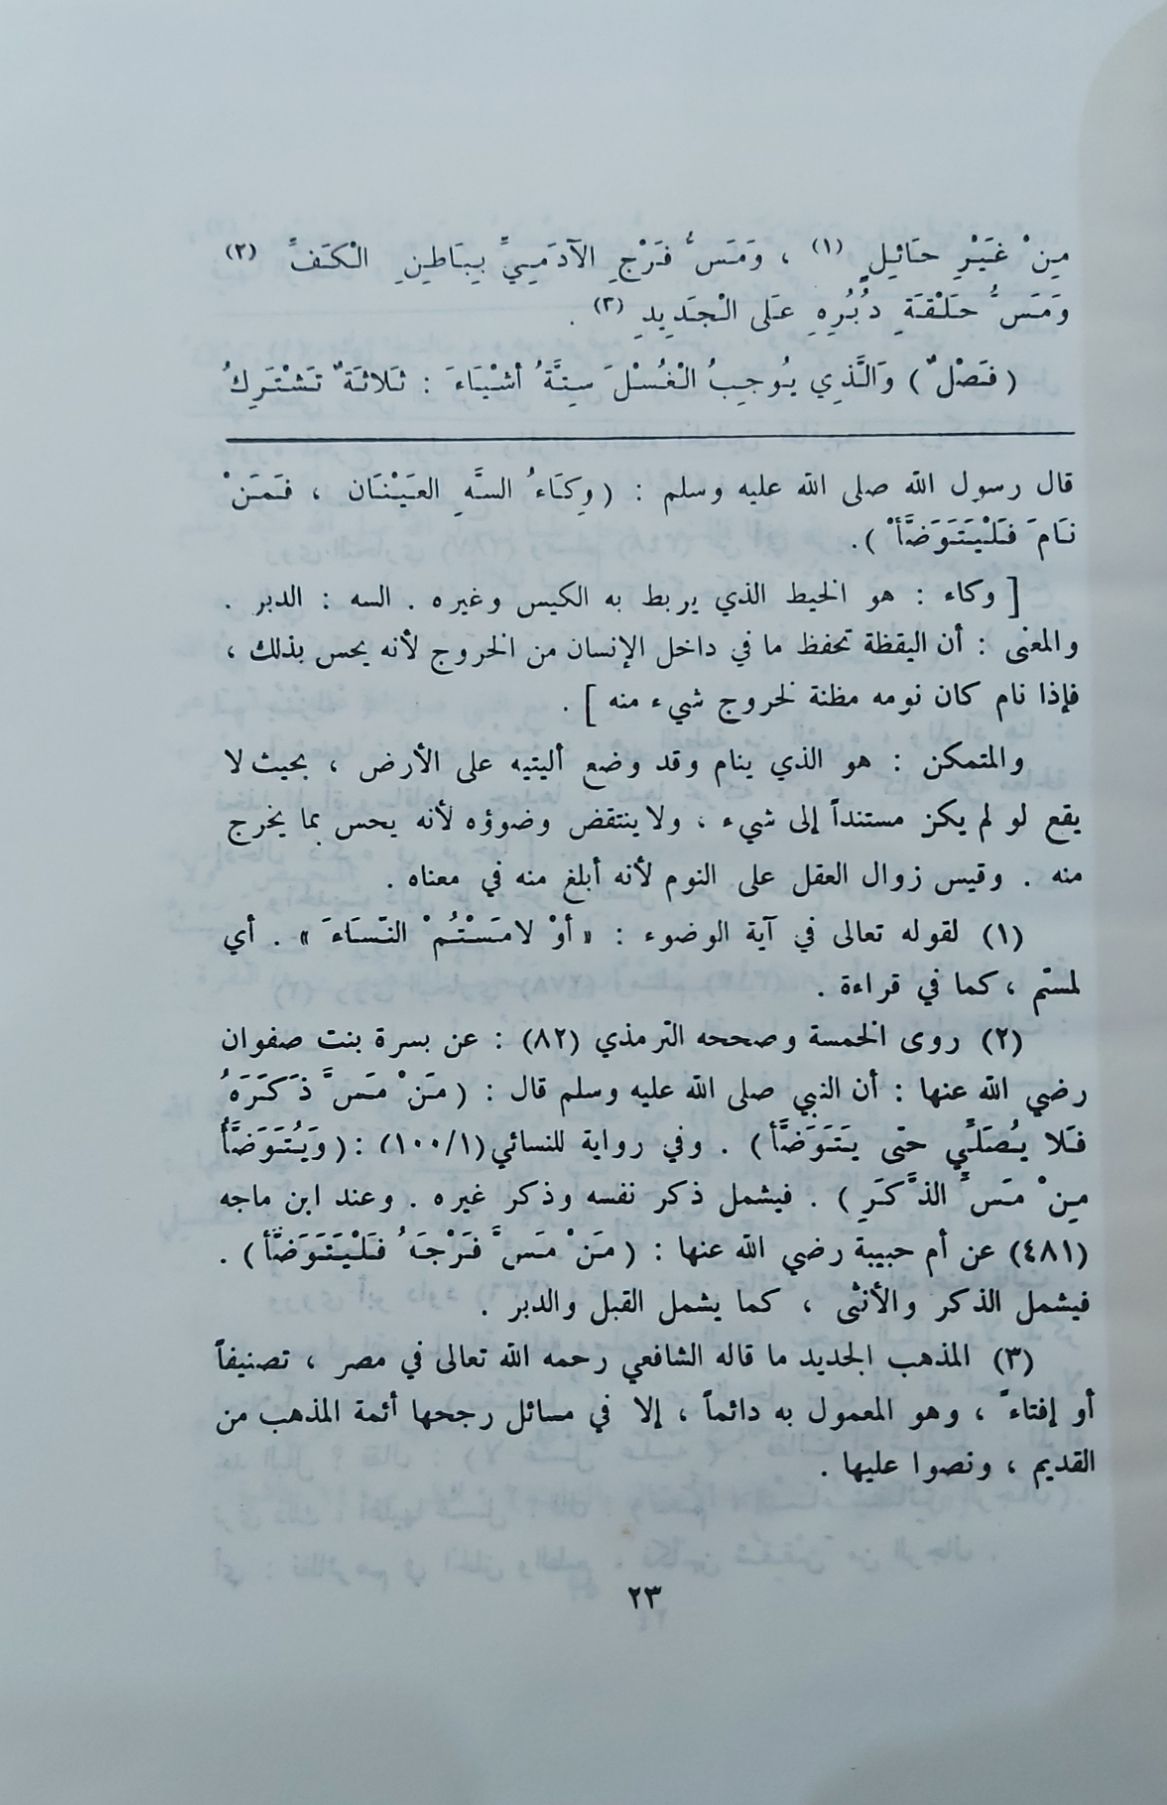 مِنْ غَيْرِ حَائِلٍ (١) ، وَمَسُّ فَرْجِ الآدَمِيِّ بِبَاطِنِ الْكَفِّ (٢)
وَمَسُّ حَلْقَةِ دُبُرِهِ عَلى الْجَدِيدِ (٣) .
( فَصْلٌ ) وَالَّذِي يُوجِبُ الْغُسْلَ سِتَّةُ أشْيَاءَ : ثَلاثَةٌ تَشْتَرِكُ
قال رسول الله صلى الله عليه وسلم : ( وِكَاءُ السَّهِ العَيْنَان ، فَمَنْ
نَامَ فَلْيَتَوَضَّأْ ) .
[ وكاء : هو الخيط الذي يربط به الكيس وغيره . السه : الدبر .
والمعنى : أن اليقظة تحفظ ما في داخل الإنسان من الخروج لأنه يحس بذلك ،
فإذا نام كان نومه مظنة لخروج شيء منه ] .
والمتمكن : هو الذي ينام وقد وضع أليتيه على الأرض ، بحيث لا
يقع لو لم يكن مستنداً إلى شيء ، ولا ينتقض وضوؤه لأنه يحس بما يخرج
منه . وقيس زوال العقل على النوم لأنه أبلغ منه في معناه .
(١) لقوله تعالى في آية الوضوء : « أوْ لامَسْتُمْ النِّسَاءَ » . أي
لمستم ، كما في قراءة .
(٢) روى الخمسة وصححه الترمذي (٨٢) : عن بسرة بنت صفوان
رضي الله عنها : أن النبي صلى الله عليه وسلم قال : ( مَنْ مَسَّ ذَكَرَهُ
فَلا يُصَلِّي حتى يَتَوَضَّأ ) . وفي رواية للنسائي (١٠٠/١) : ( وَيُتَوَضَّأُ
مِنْ مَسِّ الذَّكَرِ ) . فيشمل ذكر نفسه وذكر غيره . وعند ابن ماجه
(٤٨١) عن أم حبيبة رضي الله عنها : ( مَنْ مَسَّ فَرْجَهُ فَلْيَتَوَضَّأ ) .
فيشمل الذكر والأنثى ، كما يشمل القبل والدبر .
(٣) المذهب الجديد ما قاله الشافعي رحمه الله تعالى في مصر ، تصنيفاً
أو إفتاءً ، وهو المعمول به دائماً ، إلا في مسائل رجحها أئمة المذهب من
القديم ، ونصوا عليها .
٢٣